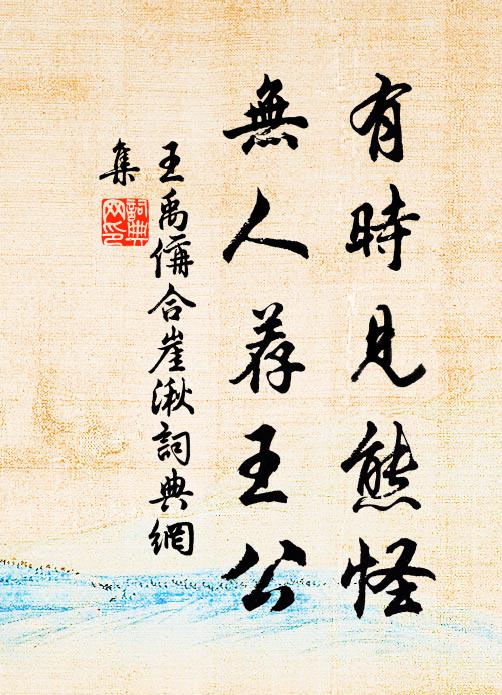 有時見熊怪
無人荐王公
王禹偁合崖湫詞典網
集
詞典网印